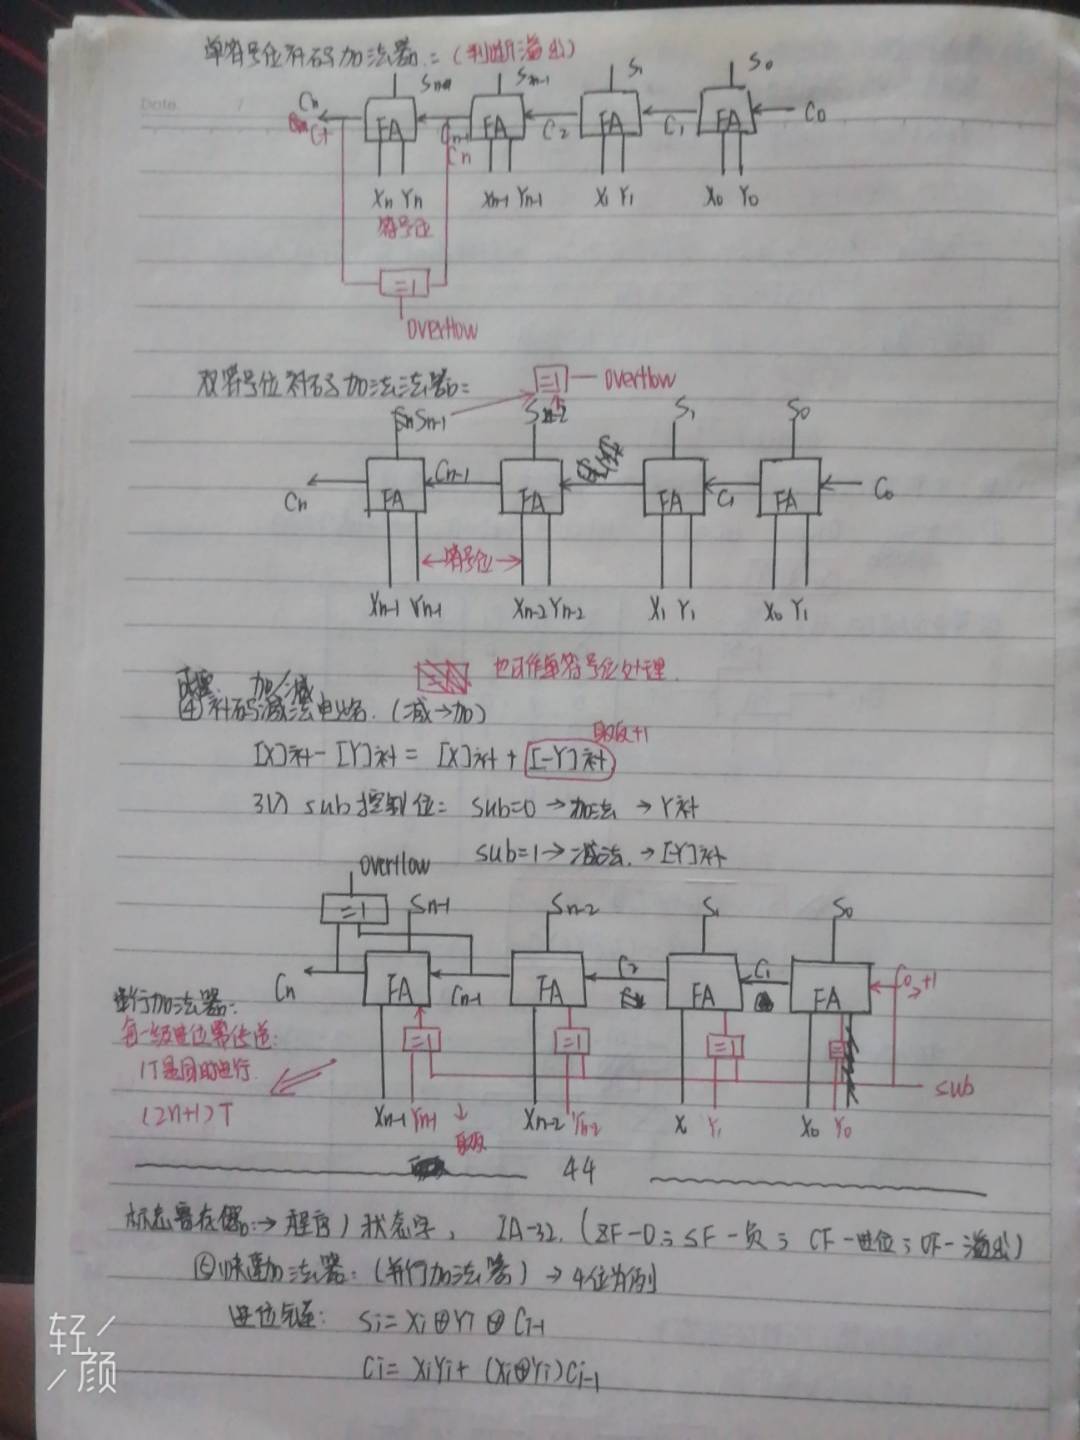 单符号位补码加法器：(判断溢出)
Sn Sn-1 S1 S0
Cn FA FA C2 FA C1 FA C0
C1 Cn-1
Cn
Xn Yn Xn-1 Yn-1 X1 Y1 X0 Y0
符号位
=1
overflow
双符号位补码加法法器：
=1 — overflow
Sn-1 Sn-2 S1 S0
Cn FA Cn-1 FA FA C1 FA C0
←符号位→
Xn-1 Yn-1 Xn-2 Yn-2 X1 Y1 X0 Y1
也可作单符号位处理.
加/减
④补码减法电路.(减→加)
取反+1
[X]补-[Y]补= [X]补+[-Y]补
引入 sub控制位: sub=0→加法 →Y补
sub=1→减法. →[-Y]补
overflow
=1 Sn-1 Sn-2 S1 S0
Cn FA Cn-1 FA C2 FA C1 FA C0→+1
串行加法器:
每一级进位需传递:
=1 =1 =1 =1
1T是同时进行.
sub
(2n+1)T
Xn-1 Yn-1 ↓ Xn-2 Yn-2 X1 Y1 X0 Y0
取反
44
标志寄存器:→程序)状态字, IA-32. (ZF-0; SF-负; CF-进位; OF-溢出)
⑤快速加法器:(并行加法器)→4位为例
进位气链: Si= Xi⊕Yi⊕Ci-1
Ci= XiYi+ (Xi⊕Yi)Ci-1
轻
颜